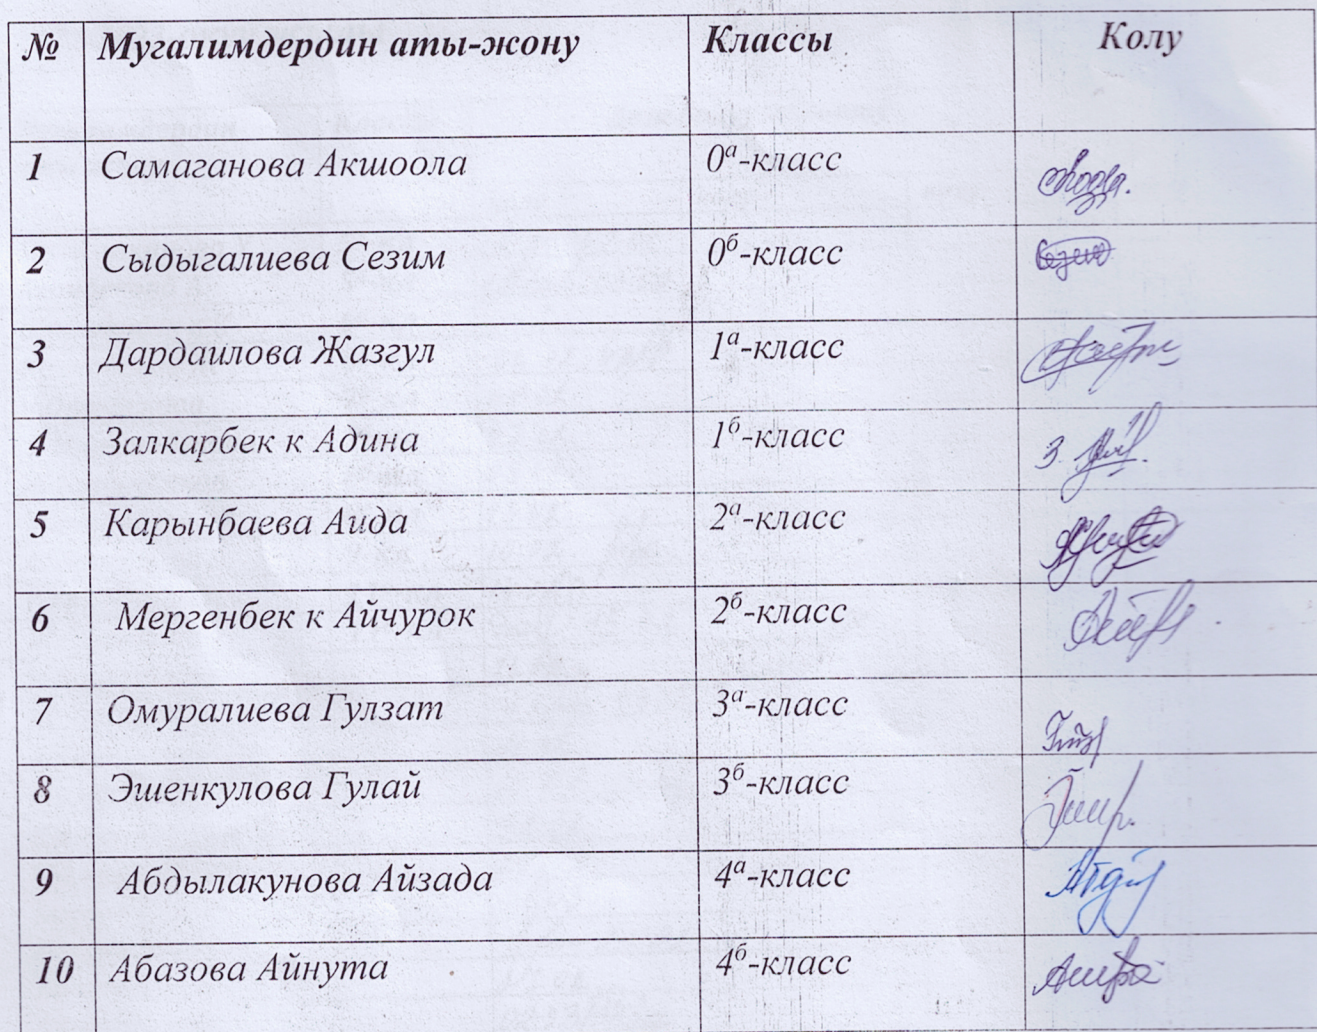 № Мугалимдердин аты-жону Классы Колу
1 Самаганова Акшоола 0ᵃ-класс
2 Сыдыгалиева Сезим 0ᵇ-класс
3 Дардаилова Жазгул 1ᵃ-класс
4 Залкарбек к Адина 1ᵇ-класс
5 Карынбаева Аида 2ᵃ-класс
6 Мергенбек к Айчурок 2ᵇ-класс
7 Омуралиева Гулзат 3ᵃ-класс
8 Эшенкулова Гулай 3ᵇ-класс
9 Абдылакунова Айзада 4ᵃ-класс
10 Абазова Айнута 4ᵇ-класс